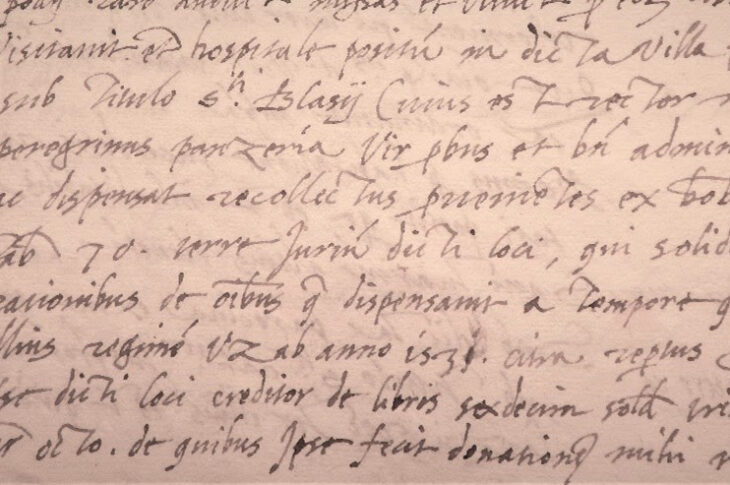 et
Visitavit et hospitale positū in dicta Villa
sub titulo S.ti Blasij Cuius est rector
peregrinus panzeria Vir pbus et bn̄ admin
ac dispensat recollectus provenietes ex bo
tab 70. terre Juriū dicti loci, qui solid
rationibus de oībus q dispensavit a tempore
illius regimē Vz ab anno 1531. citra repertus
se dicti loci creditor de libris sexdecim sold
octo. de quibus Ipse fecit donationē mihi